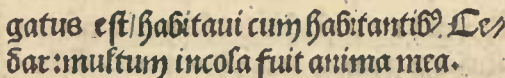 gatus est/ habitaui cum habitantibꝰ Ce⸗
dar: multum incola fuit anima mea.